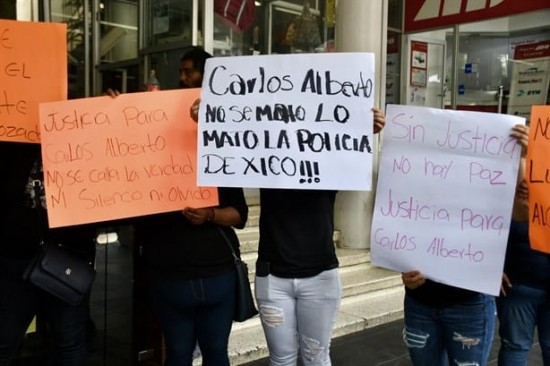 EL
Justicia Para
Carlos Alberto
No se calla la verdad
Ni Silencio ni Olvido
Carlos Alberto
NO SE MATO LO
MATO LA POLICIA
DE XICO!!!
Sin Justicia
No hay Paz
Justicia para
Carlos Alberto